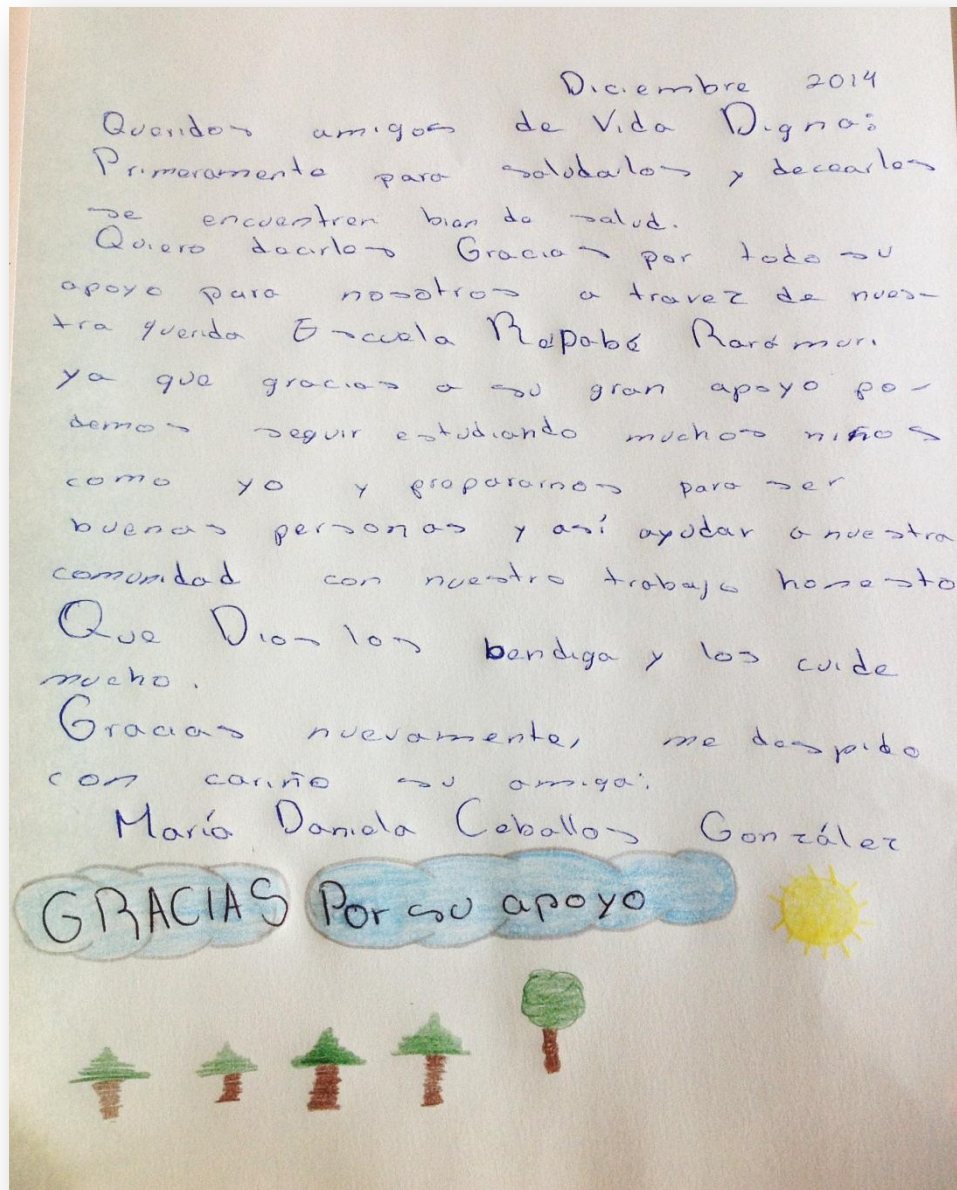 Diciembre 2014
Queridos amigos de Vida Digna:
Primeramente para saludalos y decearles
se encuentren bien de salud.
Quiero decirles Gracias por todo su
apoyo para nosotros a travez de nues-
tra querida Escuela Repabé Rarámuri
ya que gracias a su gran apoyo po-
demos seguir estudiando muchos niños
como yo y prepararnos para ser
buenas personas y así ayudar a nuestra
comunidad con nuestro trabajo honesto
Que Dios los bendiga y los cuide
mucho.
Gracias nuevamente, me despido
con cariño su amiga:
María Daniela Ceballos González
GRACIAS Por su apoyo